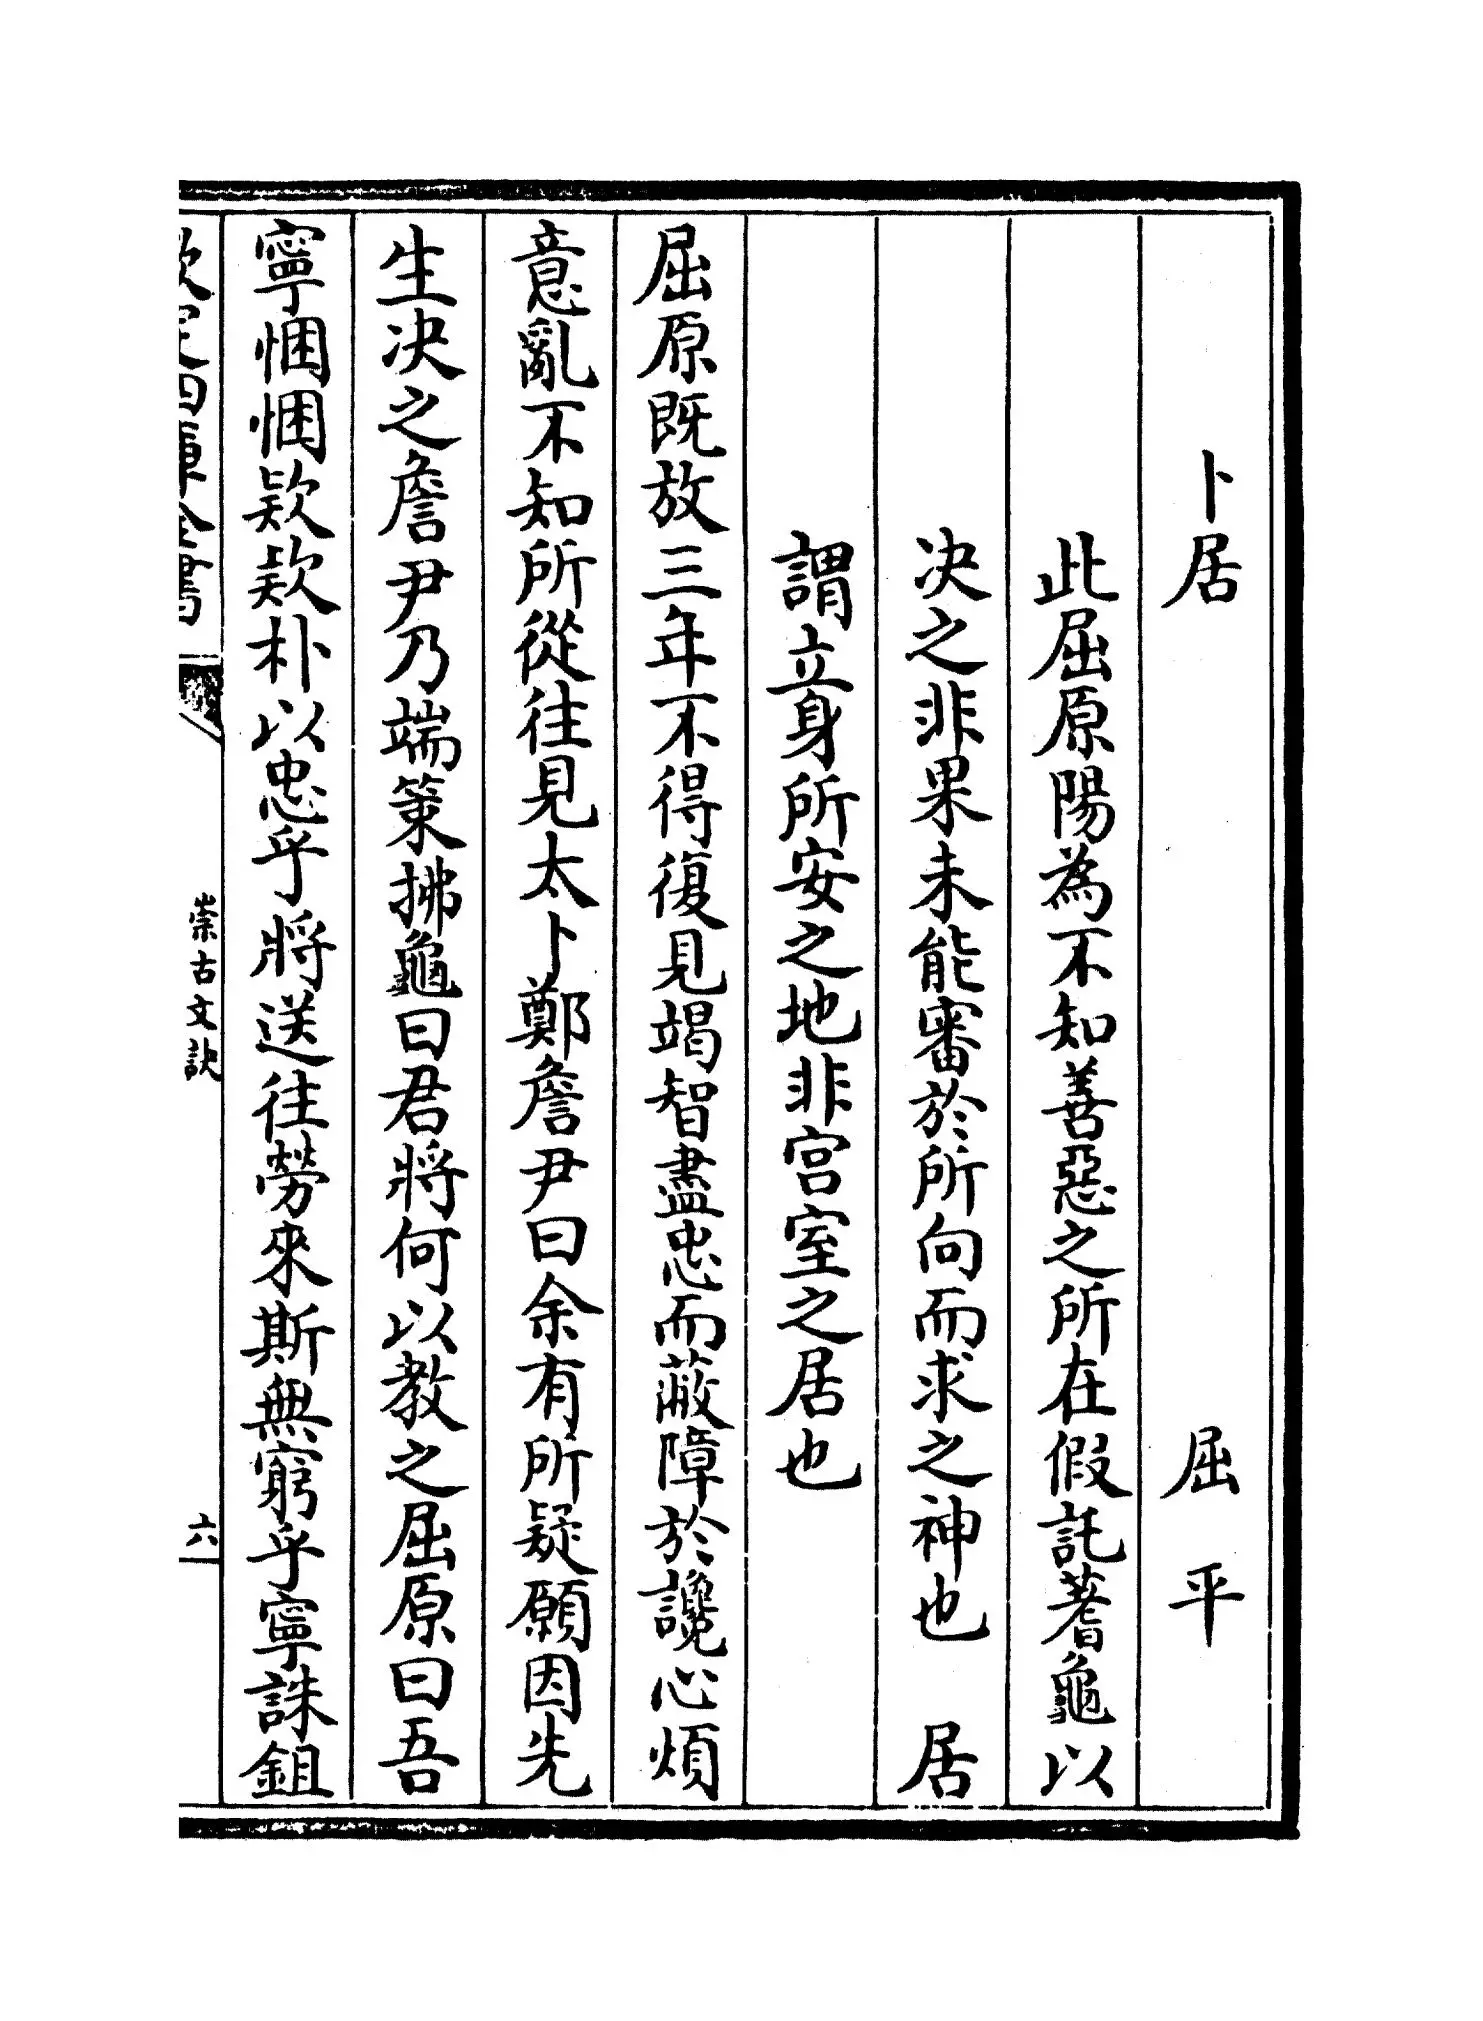 卜居　屈平
此屈原陽為不知善惡之所在假託蓍龜以
決之非果未能審於所向而求之神也　居
謂立身所安之地非宫室之居也
屈原既放三年不得復見竭智盡忠而蔽障於讒心煩
意亂不知所從往見太卜鄭詹尹曰余有所疑願因先
生决之詹尹乃端策拂龜曰君將何以教之屈原曰吾
寧悃悃欵欵朴以忠乎將送往勞來斯無窮乎寧誅鉏
欽定四庫全書　崇古文訣　六